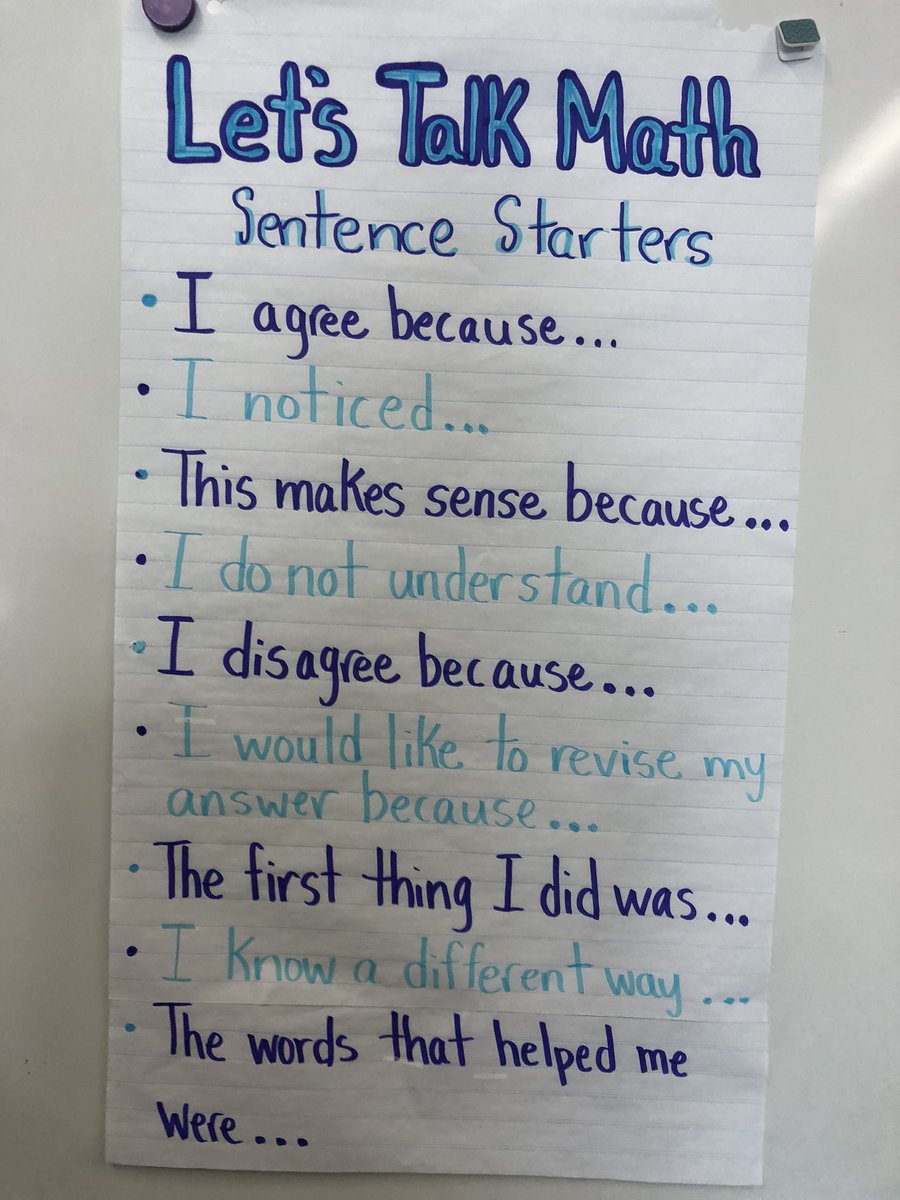 Let's Talk Math
Sentence Starters
• I agree because...
• I noticed...
• This makes sense because...
• I do not understand...
• I disagree because...
• I would like to revise my
answer because...
• The first thing I did was...
• I know a different way...
• The words that helped me
were...